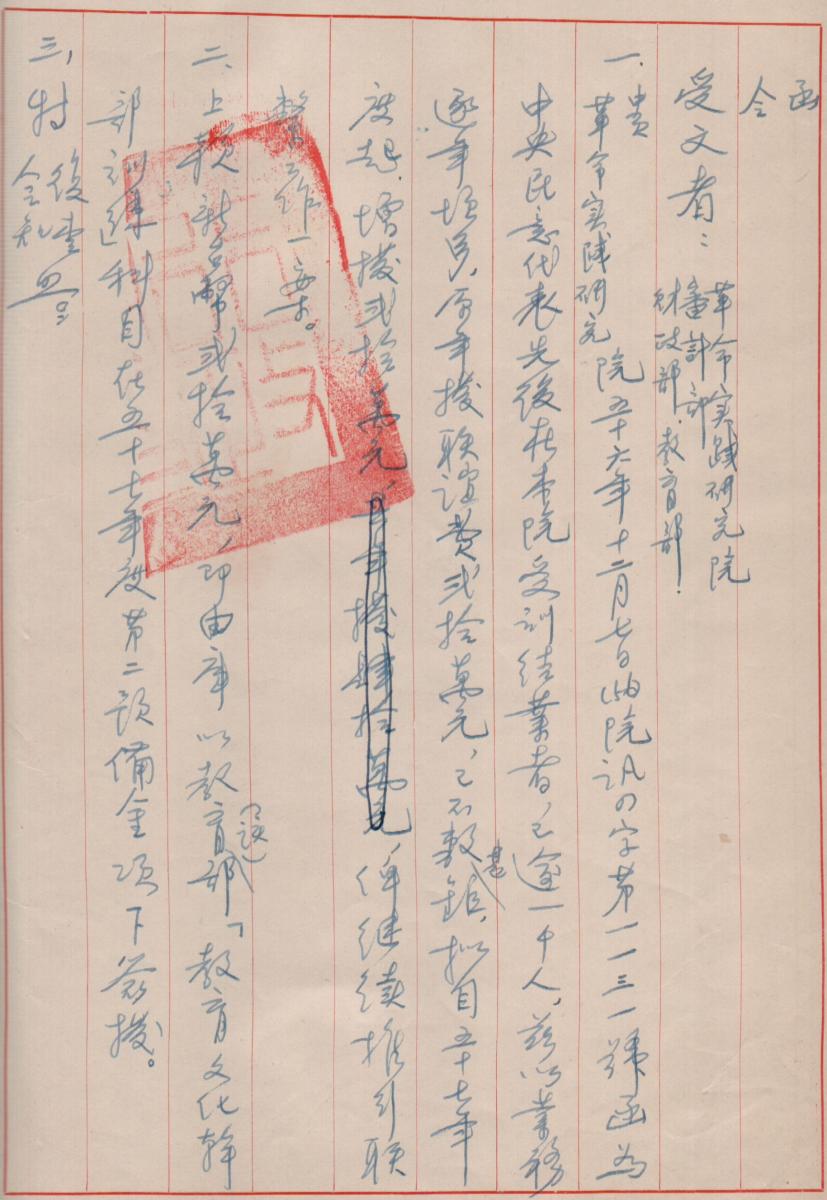 函
令
受文者：革命實踐研究院
審計部
財政部、教育部
一、貴
革命實踐研究院五十六年十二月七日(56)院訊字第一一三一號函為
中央民意代表先後在本院受訓結業者，已逾一千人，茲以業務
逐年增多，原年撥联誼費弍拾萬元，已不敷甚鉅，拟自五十七年
度起，增撥弍拾萬元，年撥肆拾萬元，俾继續推行联
繫工作一案。
二、上項新台幣弍拾萬元，即由庫以教育部(該)「教育文化幹
部訓練」科目在五十七年度第二預備金項下簽撥。
三、特復查照。
令知